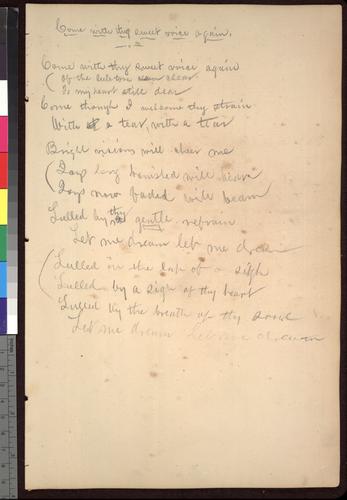 Come with thy sweet voice again.
Come with thy sweet voice again
To my heart still dear
Come though I welcome thy strain
With a tear, with a tear
Bright visions will cheer me
Joys long banished will
Joys now faded will beam
Lulled by thy gentle refrain
Let me dream let me dream
Lulled in the lap of a sigh
Lulled by a sigh of thy heart
Lulled by the breath of thy
Let me dream let me dream